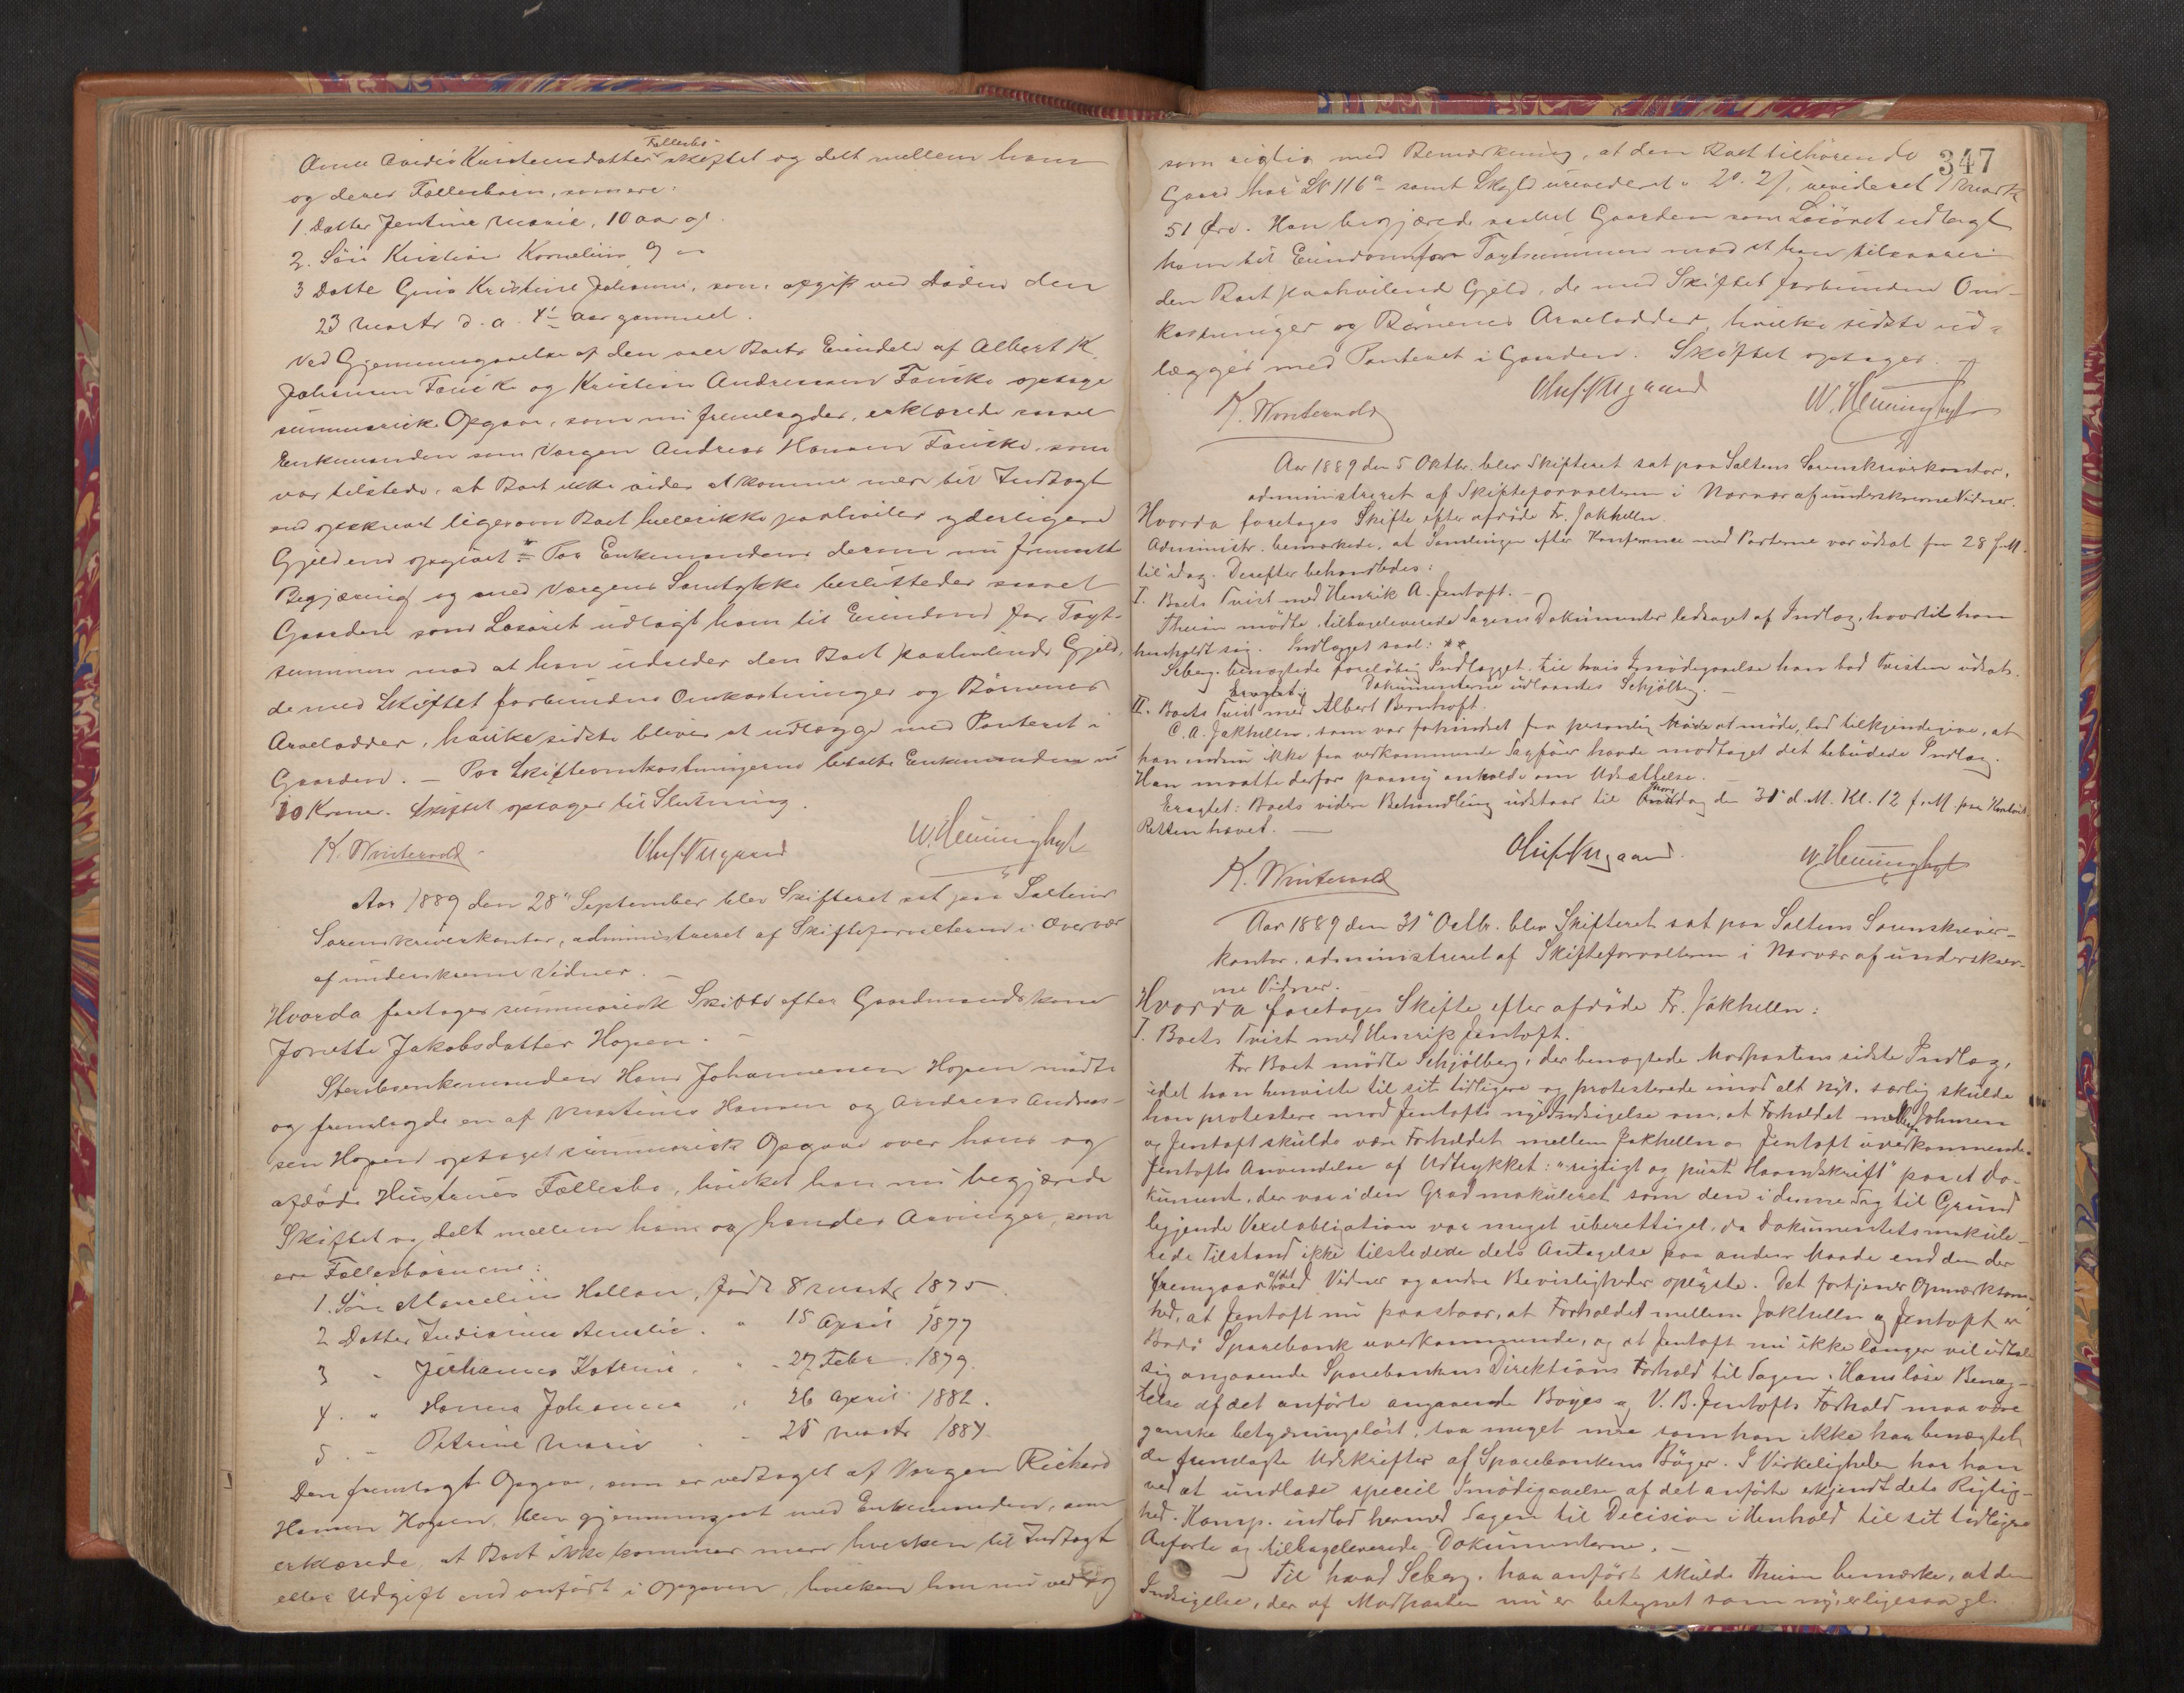 Fællesbo
Anne Kristensdatter skiftet og delt mellem ham
og deres Fællesbørn, som ere:
1. Datter Jentine Marie, 10 aar gl.
2. Søn Kristian Kornelius 9 "
3 Datter Gina Kristine Johanne, som afgik ved Døden den
23 Marts d. a. aar gammel.
Ved Gjennemgaaelse af den over Boets Eiendele af Albert K.
Johansen Fauske og Kristian Andreassen Fauske optagne
summarisk Opgave, som nu fremlagdes, erklærede saavel
Enkemanden som Værgen Andreas Hansen Fauske, som
var tilstede, at Boet ikke vides at komme mere til Indtægt
end opskrevet ligesom Boet hellerikke paahviler yderligere
Gjeld end opgivet. Paa Enkemandens derom nu fremsatte
Begjæring og med Værgens Samtykke besluttedes saavel
Gaarden som Løsøret udlagt ham til Eiendom for Taxt-
summen mod at han udreder den Boet paahvilende Gjeld,
de med Skiftet forbundne Omkostninger og Børnenes
Arvelodder, hvilke sidste bliver at udlægge med Panteret i
Gaarden. — Paa Skifteomkostningerne betalte Enkemanden nu
10 Kroner. Skiftet optages til Slutning.
K. Wintervold Oluf Aagaard W. Henninghyt
Aar 1889 den 28de September blev Skifteret sat paa Saltens
Sorenskriverkontor, administreret af Skifteforvalteren i Overvær
af underskrevne Vidner. —
Hvorda foretages summarisk Skifte efter Gaardmandskone
Jonette Jakobsdatter Hopen. —
Sterbboenkemanden Hans Johannesen Hopen mødte
og fremlagde en af Martinus Hansen og Andreas Andreas-
sen Hopen optaget summarisk Opgave over hans og
afdøde Hustrues Fællesbo, hvilket han nu begjærede
Skiftet og delt mellem ham og hendes Arvinger, som
ere Fællesbørnene:
1. Søn Marselius Hallan, født 8 Marts 1875.
2 Datter Indianna Amalie. " 15 April 1877
3 " Johanna Katrine. " 27 Febr. 1879.
4. " Hanna Johanna " 26 April 1882.
5 - Petrine Marie - 25 Marts 1884
Den fremlagte Opgave, som er vedtaget af Værgen Richard
Hansen Hopen, blev gjennemgaaet med Enkemanden, som
erklærede, at Boet ikke kommer mere hverken til Indtægt
eller Udgift end anført i Opgaven, hvilken han nu vedtog
347
som rigtig med Bemærkning, at den Boet tilhørende
Gaard har L№ 116a samt Skyld urevideret " 2 o. 2 s., revideret 1 Mark
51 Øre. Han begjærede saavel Gaarden som Løsøret udlagt
ham til Eiendom for Taxtsummen mod at han tilsvarer
den Boet paahvilende Gjeld, de med Skiftet forbundne Om-
kostninger og Børnenes Arvelodder, hvilke sidste ud-
lægges med Panteret i Gaarden. Skiftet optages. —
K. Wintervold Oluf Aagaard W. Henninghyt
Aar 1889 den 5 Oktbr. blev Skifteret sat paa Saltens Sorenskriverkontor,
administreret af Skifteforvalteren i Nærvær af underskrevne Vidner.
Hvorda foretages Skifte efter afdøde Fr. Jakhelln.
Administr. bemærkede, at Samlingen efter Konference med Parterne var udsat fra 28 f. M.
til idag. Derefter behandledes:
I. Boets Tvist med Henrik A. Jentoft. —
Thuin mødte, tilbageleverede Sagens Dokumenter ledsaget af Indlæg, hvortil han
henholdt sig. Indlægget saal: **
Scbeg. benægtede foreløbig Indlægget, til hvis Imødegaaelse han bad Tvisten udsat.
Eragtet: Dokumenterne udlaantes Schjølberg. —
II. Boets Tvist med Albert Bernhoft.
C. A. Jakhelln, som var forhindret fra personlig Møde at møde, lod tilkjendegive, at
han endnu ikke fra vedkommende Sagfører havde modtaget det bebudede Indlæg.
Han maatte derfor paany anholde om Udsættelse.
Eragtet: Boets videre Behandling udstaar til Thorsdag den 31te d. M. Kl. 12 f. M. paa Kontoret
Retten hævet. —
K. Wintervold Oluf Aagaard. W. Henninghyt
Aar 1889 den 31te Octbr. blev Skifteret sat paa Saltens Sorenskriver-
kontor, administreret af Skifteforvalteren i Nærvær af underskrev-
ne Vidner.
Hvorda foretages Skifte efter afdøde Fr. Jakhelln:
I. Boets Tvist med Henrik Jentoft.
For Boet mødte Schjølberg, der benægtede Modpartens sidste Indlæg,
idet han henviste til sit tidligere og protesterede imod alt nyt. særlig skulde
han protestere mod Jentofts nye Indsigelse om, at Forholdet mellem Johnsen
og Jentoft skulde være Forholdet mellem Jakhelln og Jentoft uvedkommende.
Jentofts Anvendelse af Udtrykket: "rigtigt og purt Haandskrift" paa et Do-
kument, der var i den Grad makuleret som den i denne Sag til Grund
liggende Vexelobligation var meget uberettiget, da Dokumentets makule-
rede Tilstand ikke tilstedede dets Antagelse paa anden Maade end den der
fremgaar af det ved Vidner og andre Bevisligheder oplyste. Det fortjener Opmærksom-
hed, at Jentoft nu paastaar, at Forholdet mellem Jakhelln og Jentoft er
Bodø Sparebank uvedkommende, og at Jentoft nu ikke længer vil udtale
sig angaaende Sparebankens Direktions Forhold til Sagen. Hans løse Benæg-
telse af det anførte angaaende Boyes og V. B. Jentofts Forhold maa være
ganske betydningsløst, saa meget mere som han ikke har benægtet
de fremlagte Udskrifter af Sparebankens Bøger. I Virkeligheden har han
ved at undlade speciel Imødegaaelse af det anførte erkjendt dets Rigtig-
hed. Komp. indlod hermed Sagen til Decision i Henhold til sit tidligere
Anførte og tilbageleverede Dokumenterne. —
— Til hvad Scberg. har anført skulde Thuin bemærke, at den
Indsigelse, der af Modparten nu er betegnet som ny, er ligesaa gl.